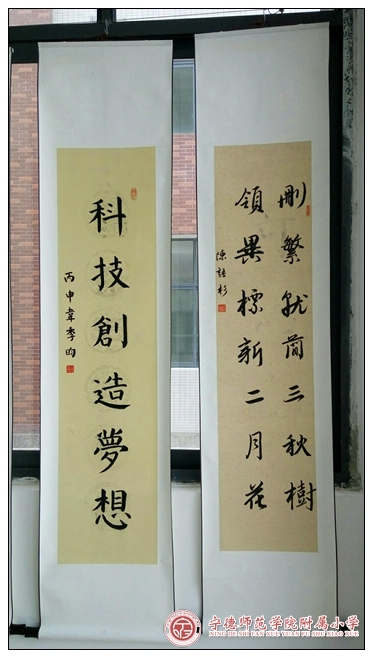 科技創造夢想
丙申韋李昀
刪繁就簡三秋樹
領異標新二月花
宁德师范学院附属小学
NING DE SHI FAN XUE YUAN FU SHU XIAO XUE